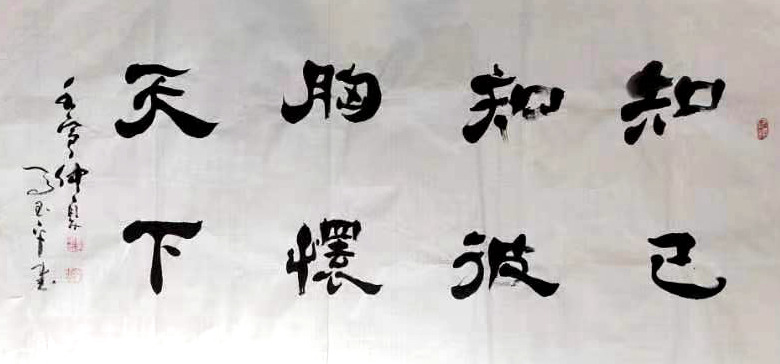 知己
知彼
胸懷
天下
壬寅仲夏
馮玉平書